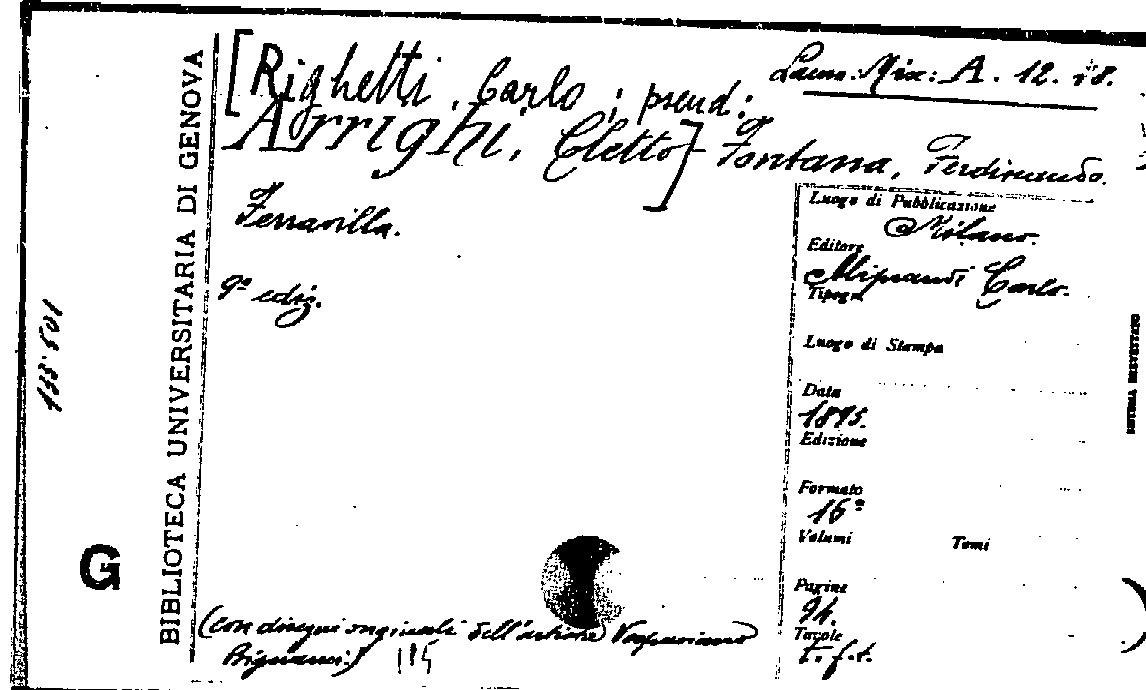 Laura. Mix: A. 12. 18.
[Righetti, Carlo; pseud:
Arrighi, Cletto] - Fontana, Ferdinando.
Ferravilla.
9ª ediz.
Luogo di Pubblicazione
Milano.
Editore
Aliprandi Carlo.
Tipogr
Luogo di Stampa
Data
1895.
Edizione
Formato
16º
Volumi Tomi
Pagine
94.
Tavole
t. f. t.
(con disegni originali dell'artista Vespasiano
Bignami.)
184
BIBLIOTECA UNIVERSITARIA DI GENOVA
G
133.601
SISTEMA BREVETTATO